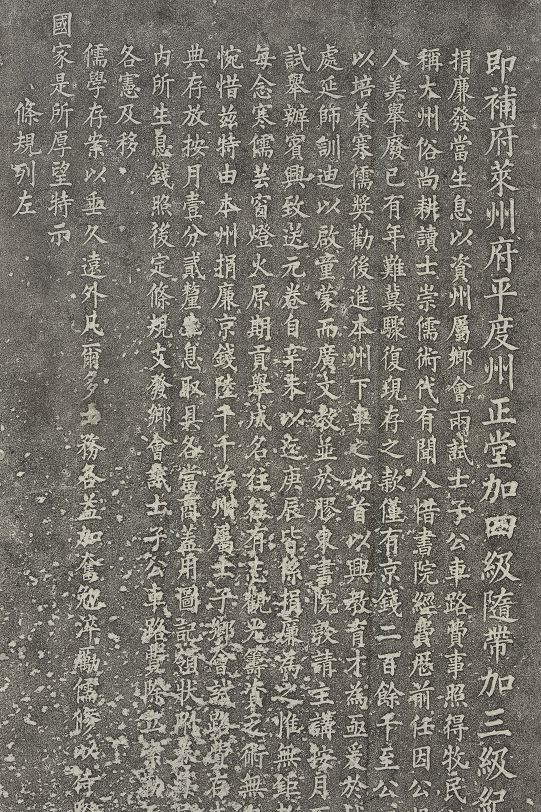 即補府萊州府平度州正堂加四級隨帶加三級紀
捐廉發當生息以資州屬鄉會兩試士子公車路費事照得牧民
稱大州俗尚耕讀士崇儒術代有聞人惜書院經費歷前任因公
人美舉廢已有年難冀驟復現存之款僅有京錢二百餘千至公
以培養寒儒獎勸後進本州下車之始首以興教育才為亟爰於
處延師訓迪以啟童蒙而廣文教並於膠東書院敦請主講按月
試舉辦賓興致送元卷自辛未以迄庚辰皆係捐廉為之惟無鉅
每念寒儒芸窗燈火原期貢舉成名往往有志觀光籌資乏術無
惋惜茲特由本州捐廉京錢陸千千為州屬士子鄉會試路費
典存放按月壹分貳釐生息取具各當商蓋用圖記領狀附
內所生息錢照後定條規支發鄉會試士子公車路費除立案勒
各憲及移
儒學存案以垂久遠外凡爾多士務各益加奮勉淬勵儒修以待
國家是所厚望特示
條規列左